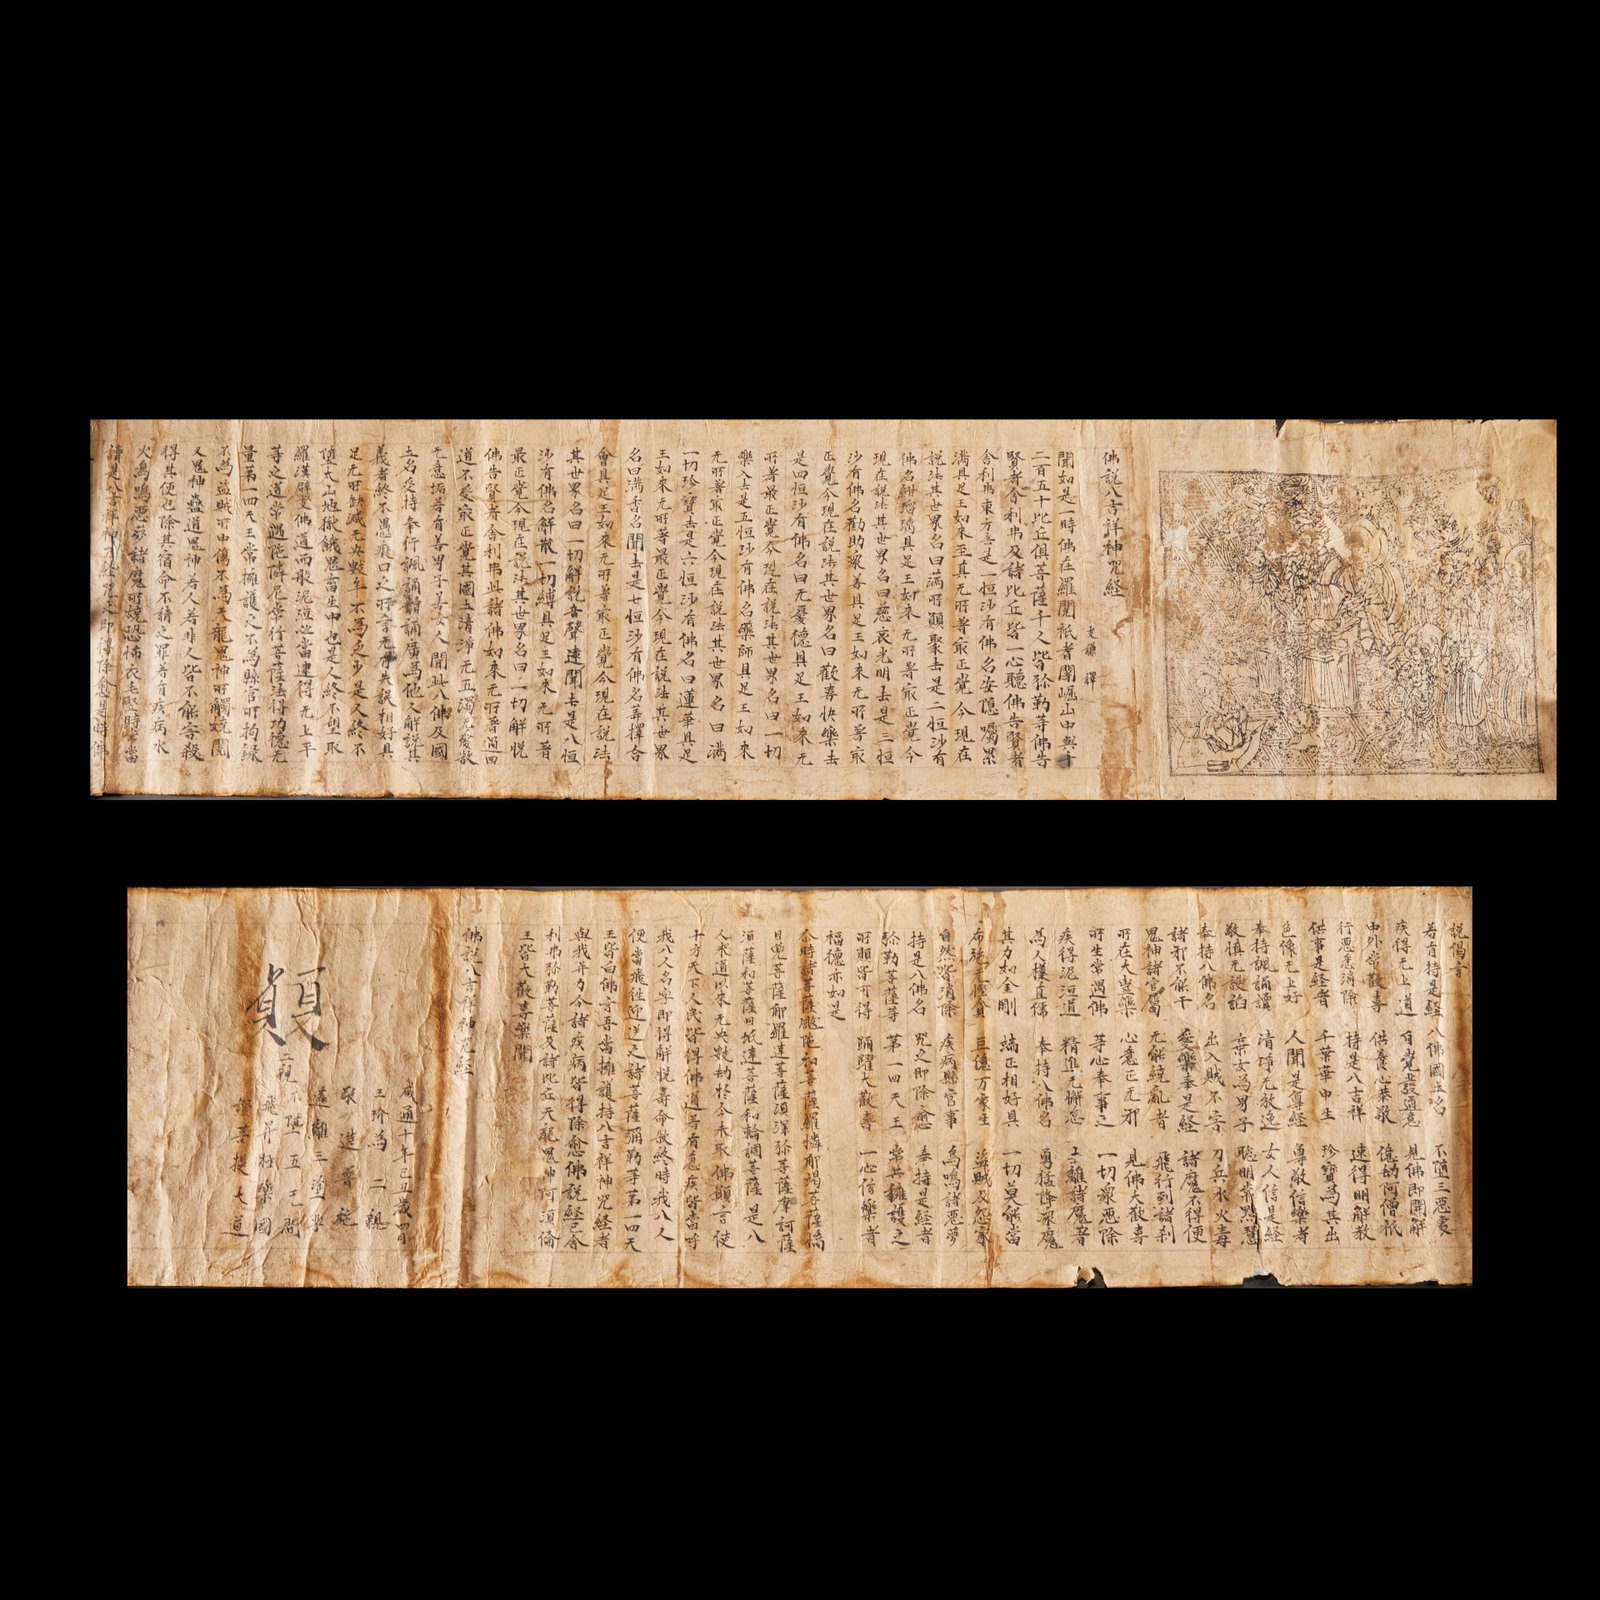 佛說八吉祥神咒經
支謙 譯
聞如是一時佛在羅閱祇耆闍崛山中與千
二百五十比丘俱菩薩千人皆弥勒等佛告
賢者舍利弗及諸比丘皆一心聽佛告賢者
舍利弗東方去是一恒沙有佛名安隱囑累
滿具足王如來至真无所著冣正覺今現在
說法其世界名曰滿所願聚去是二恒沙有
佛名紺瑠璃具足王如來无所著冣正覺今
現在說法其世界名曰慈哀光明去是三恒
沙有佛名勸助衆善具足王如來无所著冣
正覺今現在說法其世界名曰歡喜快樂去
是四恒沙有佛名曰无憂德具足王如來无
所著最正覺今現在說法其世界名曰一切
樂入去是五恒沙有佛名藥師具足王如來
无所著冣正覺今現在說法其世界名曰滿
一切珍寶去是六恒沙有佛名曰蓮華具足
王如來无所著最正覺今現在說法其世界
名曰滿香名聞去是七恒沙有佛名筭擇合
會具足王如來无所著冣正覺今現在說法
其世界名曰一切解說音聲遠聞去是八恒
沙有佛名解散一切縛具足王如來无所著
最正覺今現在說法其世界名曰一切解脫
佛告賢者舍利弗此諸佛如來无所著過四
道不受冣正覺其國土清淨无五濁无愛欲
无意垢若有善男子善女人聞此八佛及國
土名受持奉行諷誦讀誦廣為他人解說其
義者終不愚癡口之所言无有失誤相好具
足无所缺減无央數年不為乏少是人終不
墮太山地獄餓鬼畜生中也是人終不望取
羅漢辟支佛道而般泥洹必當逮得无上平
等之道常遇陁隣尼常行菩薩法得功德无
量第一四天王常擁護之不為縣官所拘錄
不為盜賊所中傷不為天龍鬼神所觸嬈閱
叉鬼神蠱道鬼神若人若非人皆不能害殺
得其便也除其宿命不請之罪若有疾病水
火鳥鳴惡夢諸魔所嬈恐怖衣毛竪時常當
讀是八吉祥神咒經咒之即得除愈是時佛
說偈言
若有持是經 八佛國土名 不墮三惡處
疾得无上道 自覺發道意 見佛即開解
中外常歡喜 供養心恭敬 億劫阿僧祇
行惡悉消除 持是八吉祥 速得明解教
供事是経者 千葉華中生 珍寶為其出
色像无上好 人聞是尊経 尊敬信樂者
奉持諷誦讀 清淨无放逸 女人信是経
敬慎无設詒 棄女為男子 聡明常黠慧
奉持八佛名 出入賊不害 刀兵水火毒
諸邪不能干 愛樂奉是経 諸魔不得便
鬼神諸官屬 无能繞亂者 飛行到諸刹
所在大豊樂 心意正无邪 見佛大歡喜
所生常遇佛 等心奉事之 一切衆惡除
疾得泥洹道 精進无懈怠 主離諸魔者
為人樸直儒 奉持八佛名 勇猛降衆魔
其力如金剛 端正相好具 一切莫能當
布施不慳貪 巨億万衆生 盜賊及怨家
自然皆消除 疾病縣官事 鳥鳴諸惡夢
持是八佛名 咒之即除愈 奉持是経者
弥勒菩薩等 第一四天王 常共擁護之
所願皆可得 踊躍大歡喜 一心信樂者
福德亦如是
尒時諸菩薩颰陁和菩薩羅憐那竭菩薩憍
曰兜菩薩那羅達菩薩須深弥菩薩摩訶薩
須薩和菩薩曰坻達菩薩和輪調菩薩是八
人求道以來无央數劫於今未取佛願言使
十方天下人民皆得佛道若有急疾皆當呼
我八人名字即得解脫壽命欲終時我八人
便當飛往迎逆之諸菩薩彌勒等第一四天
王皆白佛言吾當擁護持八吉祥神咒経者
與我并力今諸疾病皆得除愈佛說経已舍
利弗弥勒菩薩及諸比丘天龍鬼神阿須倫
王皆大歡喜樂聞
佛說八吉祥神咒経
咸通十年己丑歲四日
王玠為二親
敬造普施
遠離三塗興
二親不墮五乙間
飛昇極樂國
證菩提大道
願